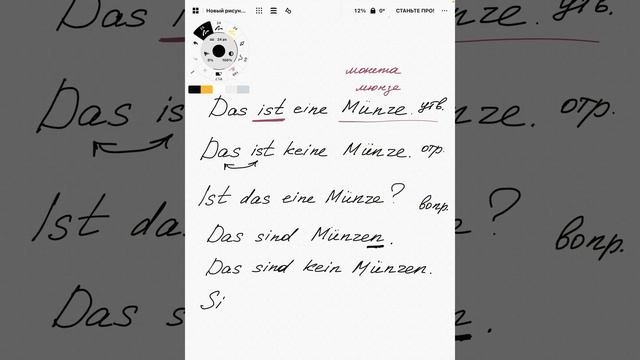 Новый рисун...
12% 0° СТАНЬТЕ ПРО!
24 pts
0% 100%
монета
мюнзе
Das ist eine Münze. утв.
Das ist keine Münze. отр.
Ist das eine Münze? вопр.
Das sind Münzen.
Das sind kein Münzen.
Si